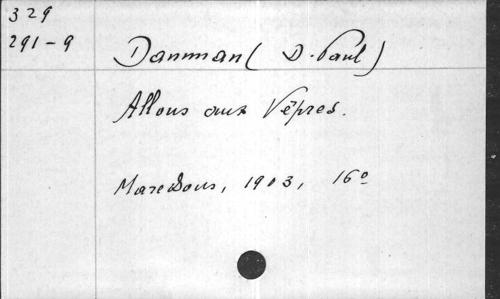 329
291-9
Danman (D. Paul)
Allons aux Vêpres.
Maredsous, 1903, 16º